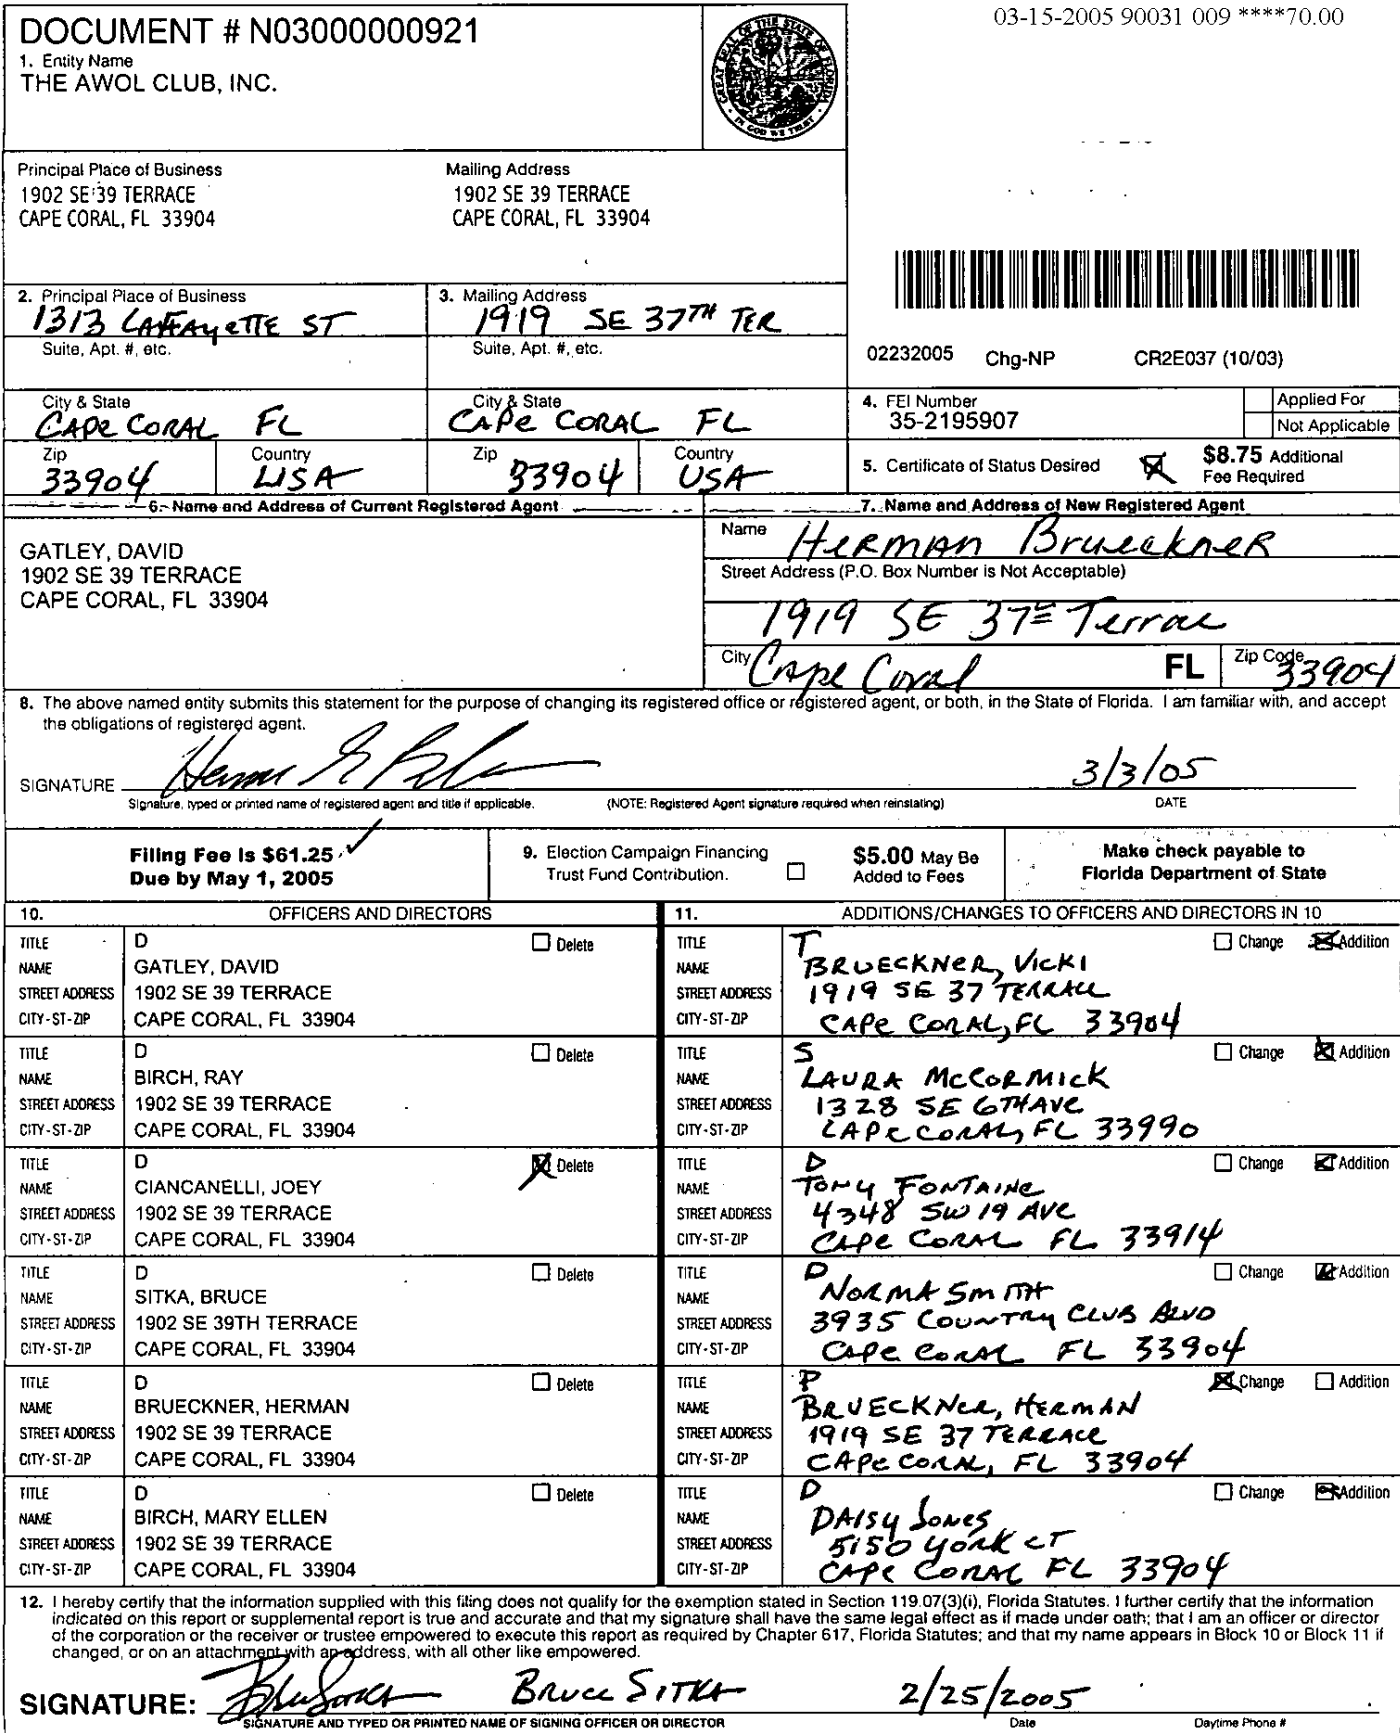 03-15-2005 90031 009 ****70.00
DOCUMENT # N03000000921
1. Entity Name
THE AWOL CLUB, INC.
GREAT SEAL OF THE STATE OF FLORIDA
IN GOD WE TRUST
Principal Place of Business
1902 SE 39 TERRACE
CAPE CORAL, FL 33904
Mailing Address
1902 SE 39 TERRACE
CAPE CORAL, FL 33904
2. Principal Place of Business
1313 LAFFAYETTE ST
Suite, Apt. #, etc.
3. Mailing Address
1919 SE 37TH TER
Suite, Apt. #, etc.
02232005 Chg-NP CR2E037 (10/03)
City & State
CAPE CORAL FL
City & State
CAPE CORAL FL
4. FEI Number
35-2195907
Applied For
Not Applicable
Zip
33904
Country
USA
Zip
33904
Country
USA
5. Certificate of Status Desired
$8.75 Additional
Fee Required
6. Name and Address of Current Registered Agent
GATLEY, DAVID
1902 SE 39 TERRACE
CAPE CORAL, FL 33904
7. Name and Address of New Registered Agent
Name
HERMAN BRUECKNER
Street Address (P.O. Box Number is Not Acceptable)
1919 SE 37 Terrac
City Cape Coral FL Zip Code 33904
8. The above named entity submits this statement for the purpose of changing its registered office or registered agent, or both, in the State of Florida. I am familiar with, and accept
the obligations of registered agent.
SIGNATURE
3/3/05
Signature, typed or printed name of registered agent and title if applicable.
(NOTE: Registered Agent signature required when reinstating)
DATE
Filing Fee is $61.25
Due by May 1, 2005
9. Election Campaign Financing
Trust Fund Contribution.
$5.00 May Be
Added to Fees
Make check payable to
Florida Department of State
10. OFFICERS AND DIRECTORS
11. ADDITIONS/CHANGES TO OFFICERS AND DIRECTORS IN 10
TITLE D Delete
NAME GATLEY, DAVID
STREET ADDRESS 1902 SE 39 TERRACE
CITY-ST-ZIP CAPE CORAL, FL 33904
TITLE T Change Addition
NAME BRUECKNER, VICKI
STREET ADDRESS 1919 SE 37 TERRACE
CITY-ST-ZIP CAPE CORAL, FL 33904
TITLE D Delete
NAME BIRCH, RAY
STREET ADDRESS 1902 SE 39 TERRACE
CITY-ST-ZIP CAPE CORAL, FL 33904
TITLE S Change Addition
NAME LAURA MCCORMICK
STREET ADDRESS 1328 SE 6TH AVE
CITY-ST-ZIP CAPE CORAL, FL 33990
TITLE D Delete
NAME CIANCANELLI, JOEY
STREET ADDRESS 1902 SE 39 TERRACE
CITY-ST-ZIP CAPE CORAL, FL 33904
TITLE D Change Addition
NAME TONY FONTAINE
STREET ADDRESS 4348 SW 19 AVE
CITY-ST-ZIP CAPE CORAL FL 33914
TITLE D Delete
NAME SITKA, BRUCE
STREET ADDRESS 1902 SE 39TH TERRACE
CITY-ST-ZIP CAPE CORAL, FL 33904
TITLE D Change Addition
NAME NORMA SMITH
STREET ADDRESS 3935 COUNTRY CLUB BLVD
CITY-ST-ZIP CAPE CORAL FL 33904
TITLE D Delete
NAME BRUECKNER, HERMAN
STREET ADDRESS 1902 SE 39 TERRACE
CITY-ST-ZIP CAPE CORAL, FL 33904
TITLE P Change Addition
NAME BRUECKNER, HERMAN
STREET ADDRESS 1919 SE 37 TERRACE
CITY-ST-ZIP CAPE CORAL, FL 33904
TITLE D Delete
NAME BIRCH, MARY ELLEN
STREET ADDRESS 1902 SE 39 TERRACE
CITY-ST-ZIP CAPE CORAL, FL 33904
TITLE D Change Addition
NAME DAISY JONES
STREET ADDRESS 5150 YORK CT
CITY-ST-ZIP CAPE CORAL FL 33904
12. I hereby certify that the information supplied with this filing does not qualify for the exemption stated in Section 119.07(3)(i), Florida Statutes. I further certify that the information
indicated on this report or supplemental report is true and accurate and that my signature shall have the same legal effect as if made under oath; that I am an officer or director
of the corporation or the receiver or trustee empowered to execute this report as required by Chapter 617, Florida Statutes; and that my name appears in Block 10 or Block 11 if
changed, or on an attachment with an address, with all other like empowered.
SIGNATURE: BRUCE SITKA 2/25/2005
SIGNATURE AND TYPED OR PRINTED NAME OF SIGNING OFFICER OR DIRECTOR
Date
Daytime Phone #